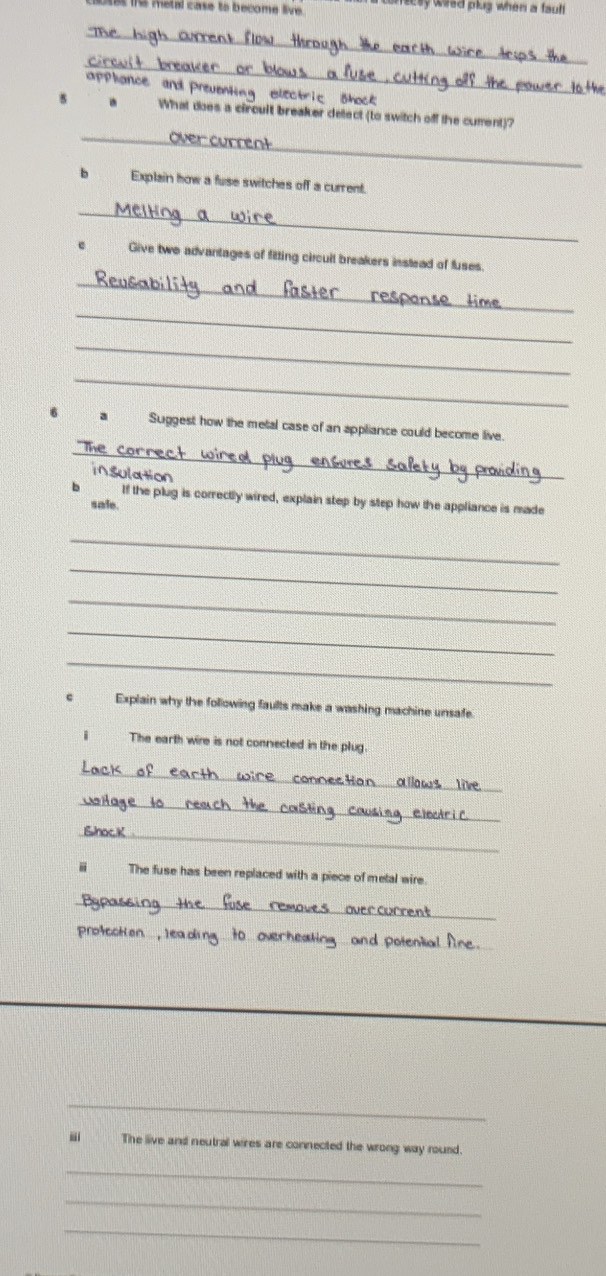 causes the metal case to become live. correctly wired plug when a fault
The high current flow through the earth wire trips the
circuit breaker or blows a fuse, cutting off the power to the
appliance and preventing electric shock
5 a What does a circuit breaker detect (to switch off the current)?
overcurrent
b Explain how a fuse switches off a current.
Melting a wire
c Give two advantages of fitting circuit breakers instead of fuses.
Reusability and faster response time
6 a Suggest how the metal case of an appliance could become live.
The correct wired plug ensures safety by providing
insulation
b If the plug is correctly wired, explain step by step how the appliance is made
safe.
c Explain why the following faults make a washing machine unsafe.
i The earth wire is not connected in the plug.
Lack of earth wire connection allows live
voltage to reach the casting causing electric
shock.
ii The fuse has been replaced with a piece of metal wire.
Bypassing the fuse removes overcurrent
protection, leading to overheating and potential fire.
iii The live and neutral wires are connected the wrong way round.